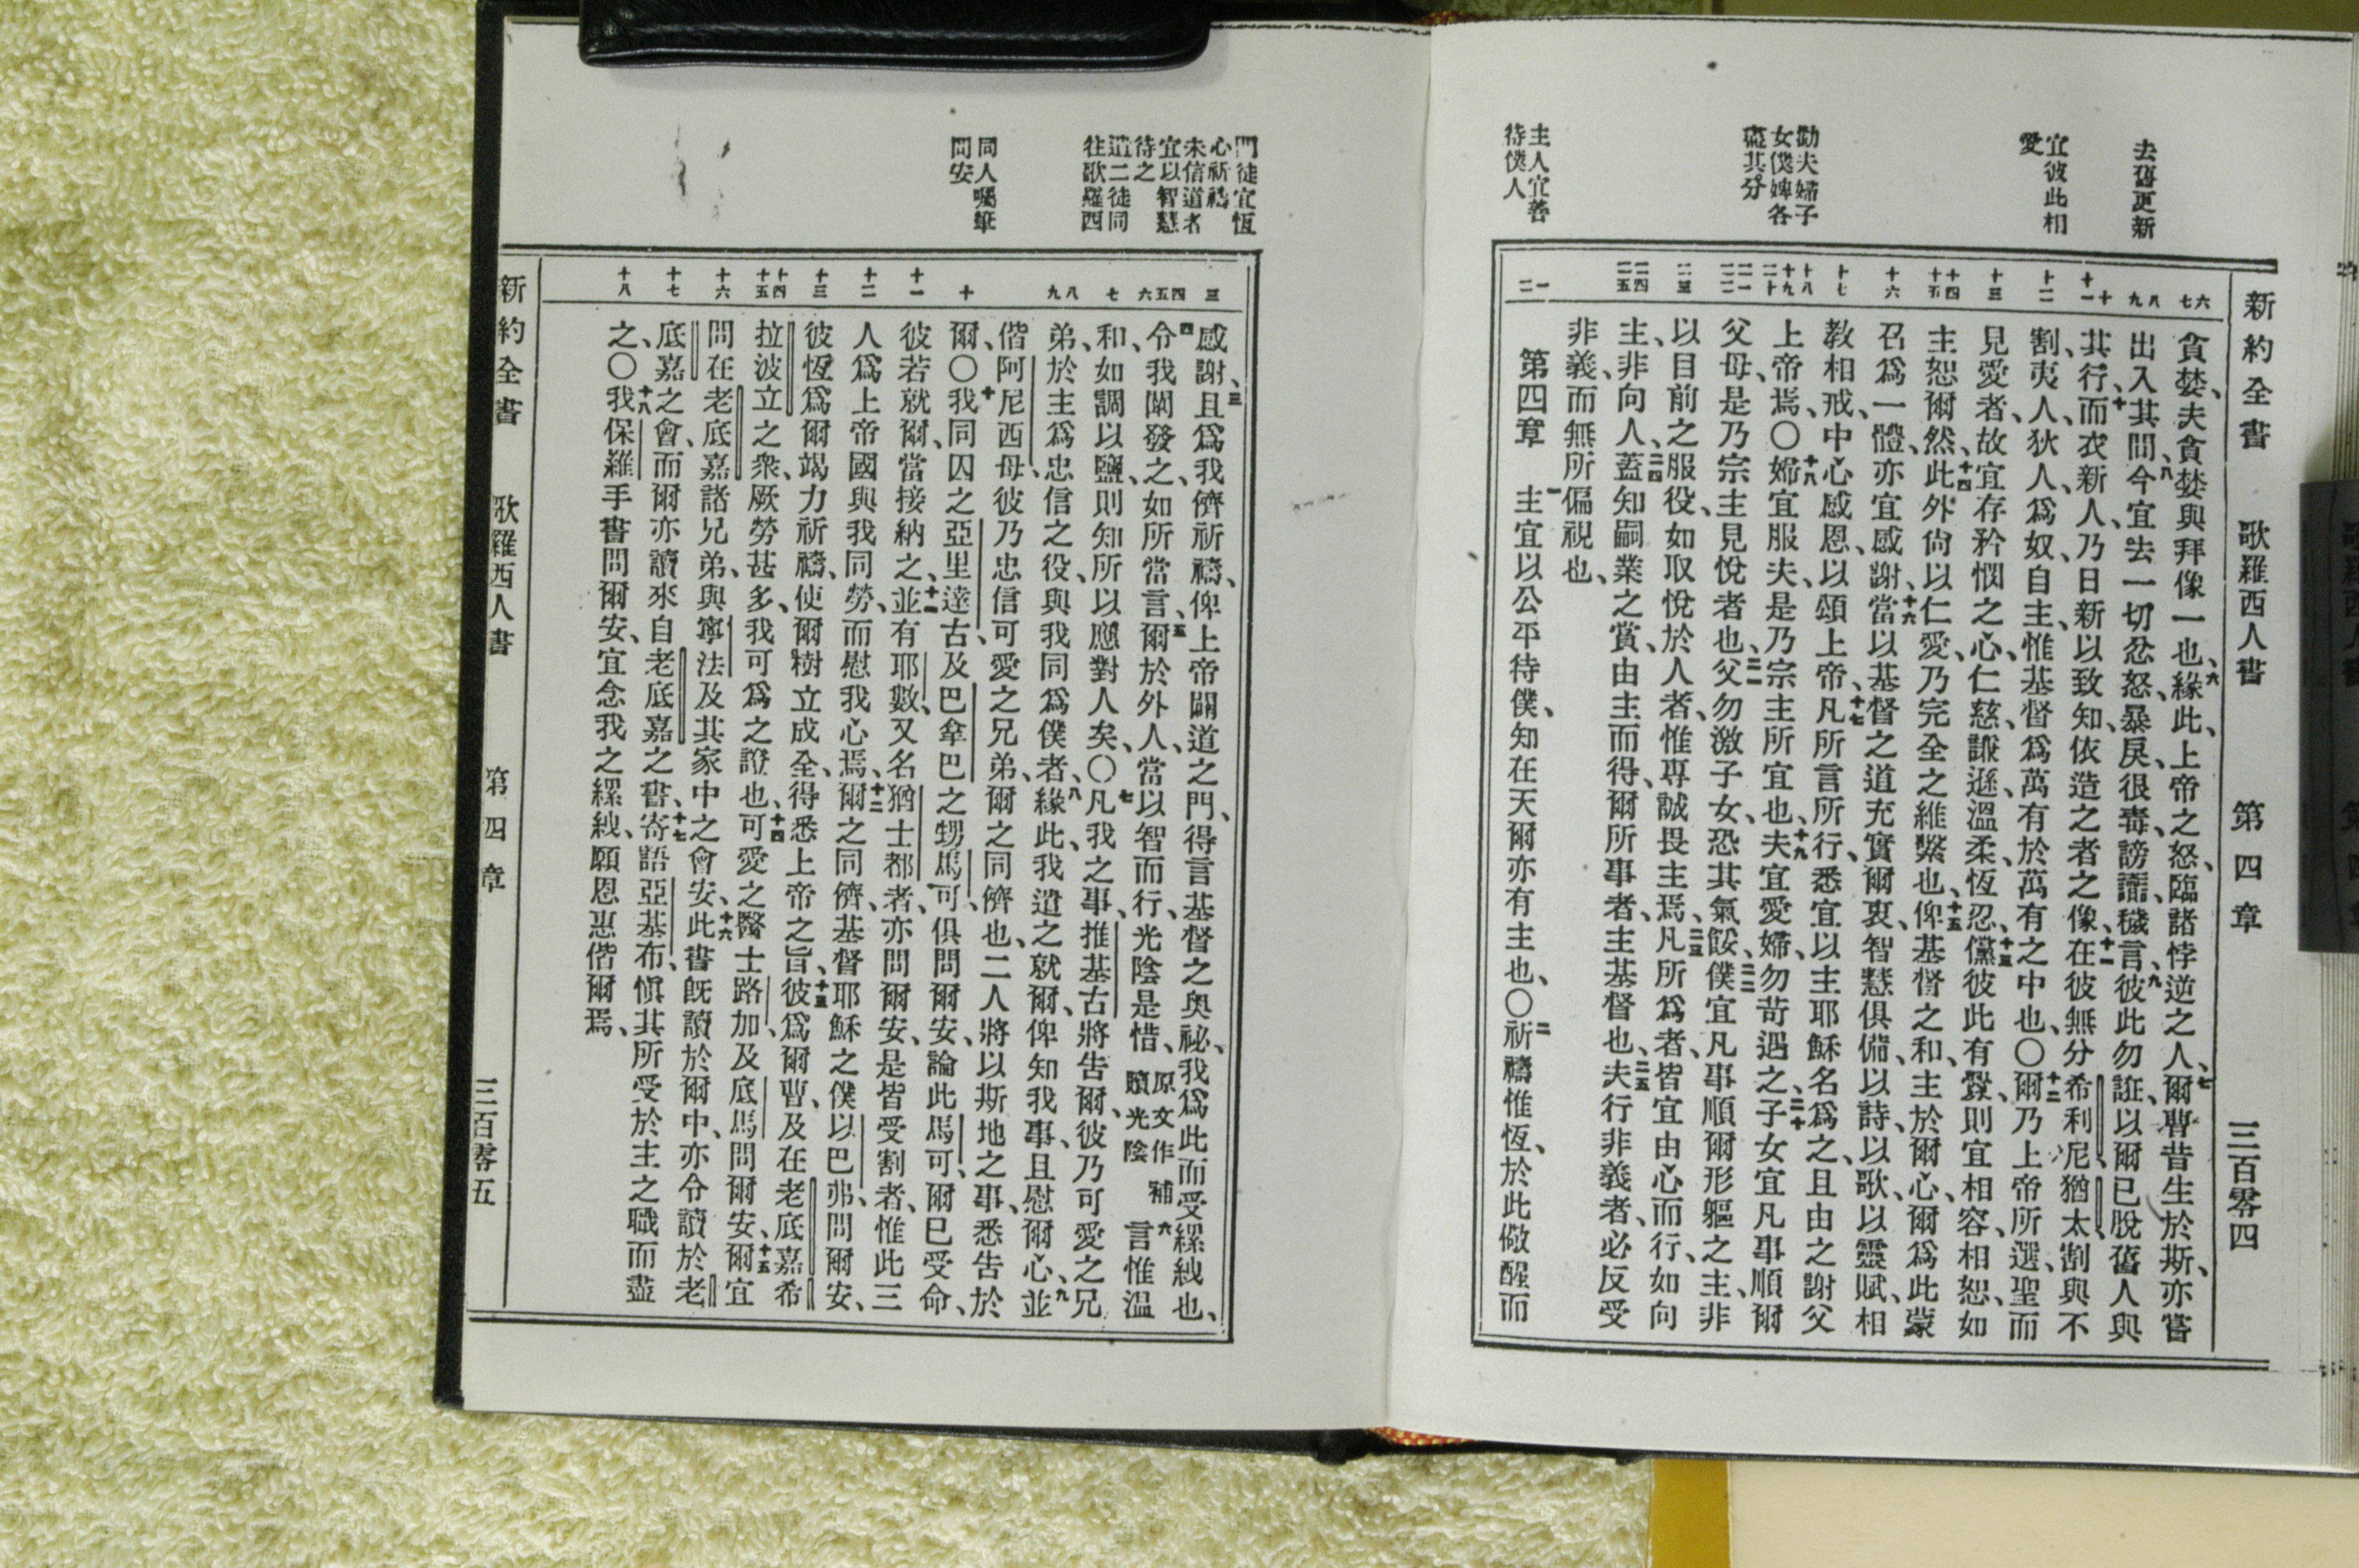 去舊更新
宜彼此相
愛
勸夫婦子
女僕婢各
盡其分
主人宜善
待僕人
新約全書 歌羅西人書 第四章 三百零四
六 七
八 九
十 十一
十二
十三
十四 十五
十六
十七
十八 十九 二十
二一 二二
二三
二四 二五
一 二
貪婪、夫貪婪與拜像一也、六緣此、上帝之怒、臨諸悖逆之人、七爾曹昔生於斯、亦嘗
出入其間、八今宜去一切忿怒、暴戾、很毒、謗讟、穢言、九彼此勿誑、以爾已脫舊人與
其行、十而衣新人、乃日新以致知、依造之者之像、十一在彼無分希利尼、猶太、割與不
割、夷人、狄人、爲奴、自主、惟基督爲萬有於萬有之中也、〇十二爾乃上帝所選、聖而
見愛者、故宜存矜憫之心、仁慈、謙遜、溫柔、恆忍、十三儻彼此有釁、則宜相容、相恕、如
主恕爾然、十四此外尙以仁愛、乃完全之維繫也、十五俾基督之和、主於爾心、爾爲此蒙
召爲一體、亦宜感謝、十六當以基督之道充實爾衷、智慧俱備、以詩、以歌、以靈賦、相
教相戒、中心感恩、以頌上帝、十七凡所言所行、悉宜以主耶穌名爲之、且由之謝父
上帝焉、〇十八婦宜服夫、是乃宗主所宜也、十九夫宜愛婦、勿苛遇之、二十子女宜凡事順爾
父母、是乃宗主見悅者也、二一父勿激子女、恐其氣餒、二二僕宜凡事順爾形軀之主、非
以目前之服役、如取悅於人者、惟專誠畏主焉、二三凡所爲者、皆宜由心而行、如向
主、非向人、二四蓋知嗣業之賞、由主而得、爾所事者、主基督也、二五夫行非義者、必反受
非義、而無所偏視也、
第四章 一主宜以公平待僕、知在天爾亦有主也、〇二祈禱惟恆、於此儆醒而
門徒宜恆
心祈禱
未信道者
宜以智慧
待之
遣二徒同
往歌羅西
同人囑筆
問安
三
四 五 六
七
八 九
十
十一
十二
十三
十四 十五
十六
十七
十八
感謝、三且爲我儕祈禱、俾上帝闢道之門、得言基督之奧祕、我爲此而受縲絏也、
四令我闡發之、如所當言、五爾於外人、當以智而行、光陰是惜、原文作補贖光陰 六言惟溫
和、如調以鹽、則知所以應對人矣、〇七凡我之事、推基古將告爾、彼乃可愛之兄
弟、於主爲忠信之役、與我同爲僕者、八緣此、我遣之就爾、俾知我事、且慰爾心、九並
偕阿尼西母、彼乃忠信可愛之兄弟、爾之同儕也、二人將以斯地之事、悉告於
爾、〇十我同囚之亞里達古、及巴拿巴之甥馬可、俱問爾安、論此馬可、爾已受命、
彼若就爾、當接納之、十一並有耶數、又名猶士都者、亦問爾安、是皆受割者、惟此三
人爲上帝國與我同勞、而慰我心焉、十二爾之同儕、基督耶穌之僕以巴弗問爾安、
彼恆爲爾竭力祈禱、使爾樹立成全、得悉上帝之旨、十三彼爲爾曹、及在老底嘉希
拉波立之衆、厥勞甚多、我可爲之證也、十四可愛之醫士路加、及底馬問爾安、十五爾宜
問在老底嘉諸兄弟、與寧法及其家中之會安、十六此書旣讀於爾中、亦令讀於老
底嘉之會、而爾亦讀來自老底嘉之書、十七寄語亞基布、愼其所受於主之職而盡
之、〇十八我保羅手書問爾安、宜念我之縲絏、願恩惠偕爾焉、
新約全書 歌羅西人書 第四章 三百零五